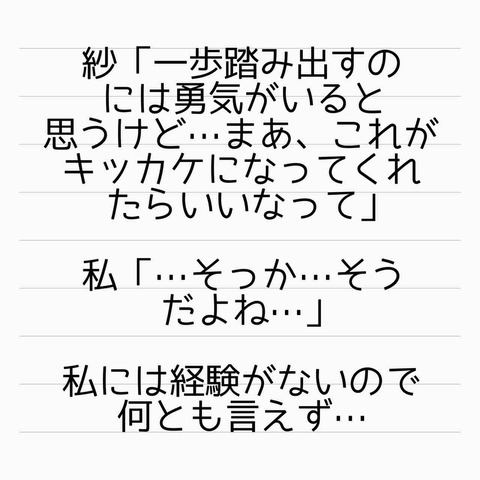 紗「一歩踏み出すの
には勇気がいると
思うけど…まあ、これが
キッカケになってくれ
たらいいなって」
私「…そっか…そう
だよね…」
私には経験がないので
何とも言えず…